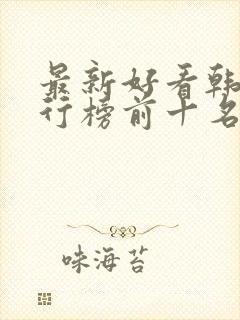 最新好看韩
行榜前十名
味海苔